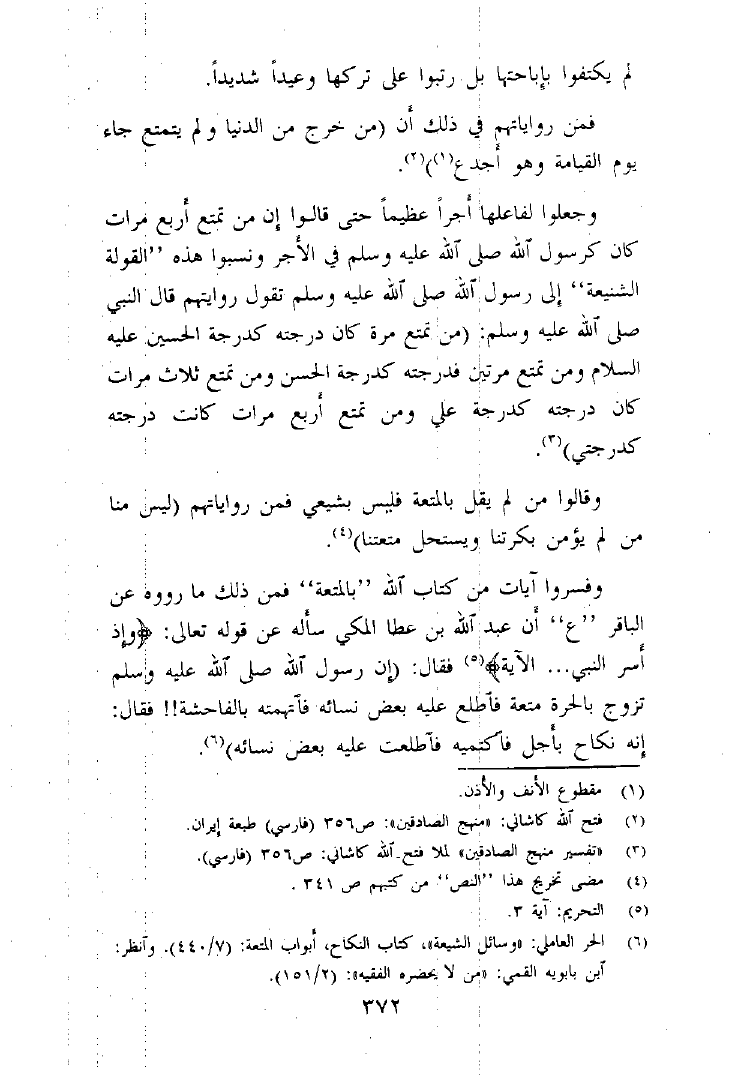 لم يكتفوا بإباحتها بل رتبوا على تركها وعيداً شديداً.
فمن رواياتهم في ذلك أن (من خرج من الدنيا ولم يتمتع جاء
يوم القيامة وهو أجدع(١))(٢).
وجعلوا لفاعلها أجراً عظيماً حتى قالوا إن من تمتع أربع مرات
كان كرسول الله صلى الله عليه وسلم في الأجر ونسبوا هذه ''القولة
الشنيعة'' إلى رسول الله صلى الله عليه وسلم تقول روايتهم قال النبي
صلى الله عليه وسلم: (من تمتع مرة كان درجته كدرجة الحسين عليه
السلام ومن تمتع مرتين فدرجته كدرجة الحسن ومن تمتع ثلاث مرات
كان درجته كدرجة علي ومن تمتع أربع مرات كانت درجته
كدرجتي)(٣).
وقالوا من لم يقل بالمتعة فليس بشيعي فمن رواياتهم (ليس منا
من لم يؤمن بكرتنا ويستحل متعتنا)(٤).
وفسروا آيات من كتاب الله ''بالمتعة'' فمن ذلك ما رووه عن
الباقر ''ع'' أن عبد الله بن عطا المكي سأله عن قوله تعالى: ﴿وإذ
أسر النبي... الآية﴾(٥) فقال: (إن رسول الله صلى الله عليه وسلم
تزوج بالحرة متعة فآطلع عليه بعض نسائه فآتهمته بالفاحشة!! فقال:
إنه نكاح بأجل فآكتميه فآطلعت عليه بعض نسائه)(٦).
(١) مقطوع الأنف والأذن.
(٢) فتح الله كاشاني: «منهج الصادقين»: ص٣٥٦ (فارسي) طبعة إيران.
(٣) «تفسير منهج الصادقين» لملا فتح الله كاشاني: ص٣٥٦ (فارسي).
(٤) مضى تخريج هذا ''النص'' من كتبهم ص ٣٤١ .
(٥) التحريم: آية ٣.
(٦) الحر العاملي: «وسائل الشيعة»، كتاب النكاح، أبواب المتعة: (٤٤٠/٧). وآنظر:
آبن بابويه القمي: «من لا يحضره الفقيه»: (١٥١/٢).
٣٧٢